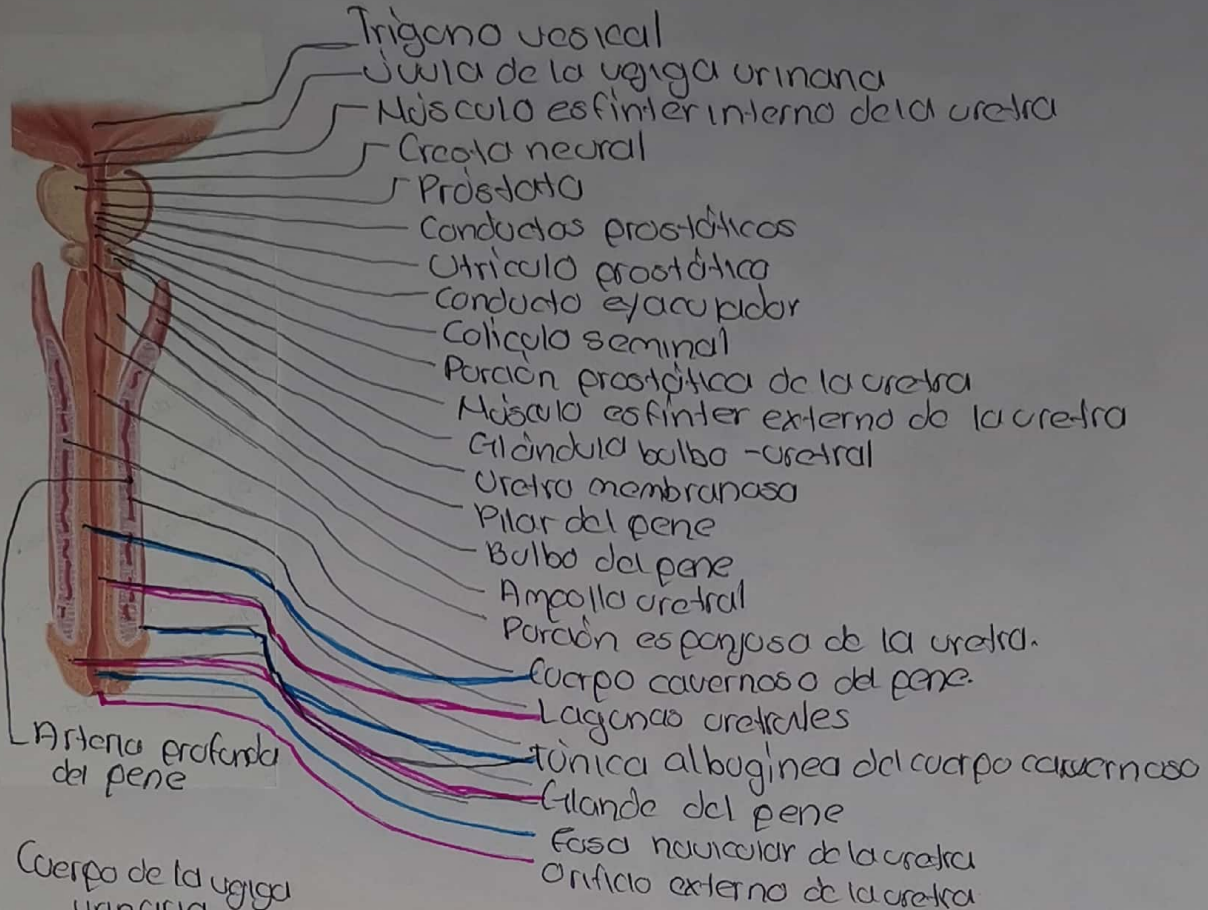 Trígono vesical
Úvula de la vegiga urinaria
Músculo esfinter interno de la uretra
Cresta neural
Próstata
Conductos prostáticos
Utrículo prostático
Conducto eyaculador
Colículo seminal
Porción prostática de la uretra
Músculo esfinter externo de la uretra
Glándula bulbo-uretral
Uretra membranosa
Pilar del pene
Bulbo del pene
Ampolla uretral
Porción esponjosa de la uretra.
Cuerpo cavernoso del pene.
Lagunas uretrales
Túnica albuginea del cuerpo cavernoso
Glande del pene
Fosa navicular de la uretra
Orificio externo de la uretra
Arteria profunda
del pene
Cuerpo de la vegiga
urinaria